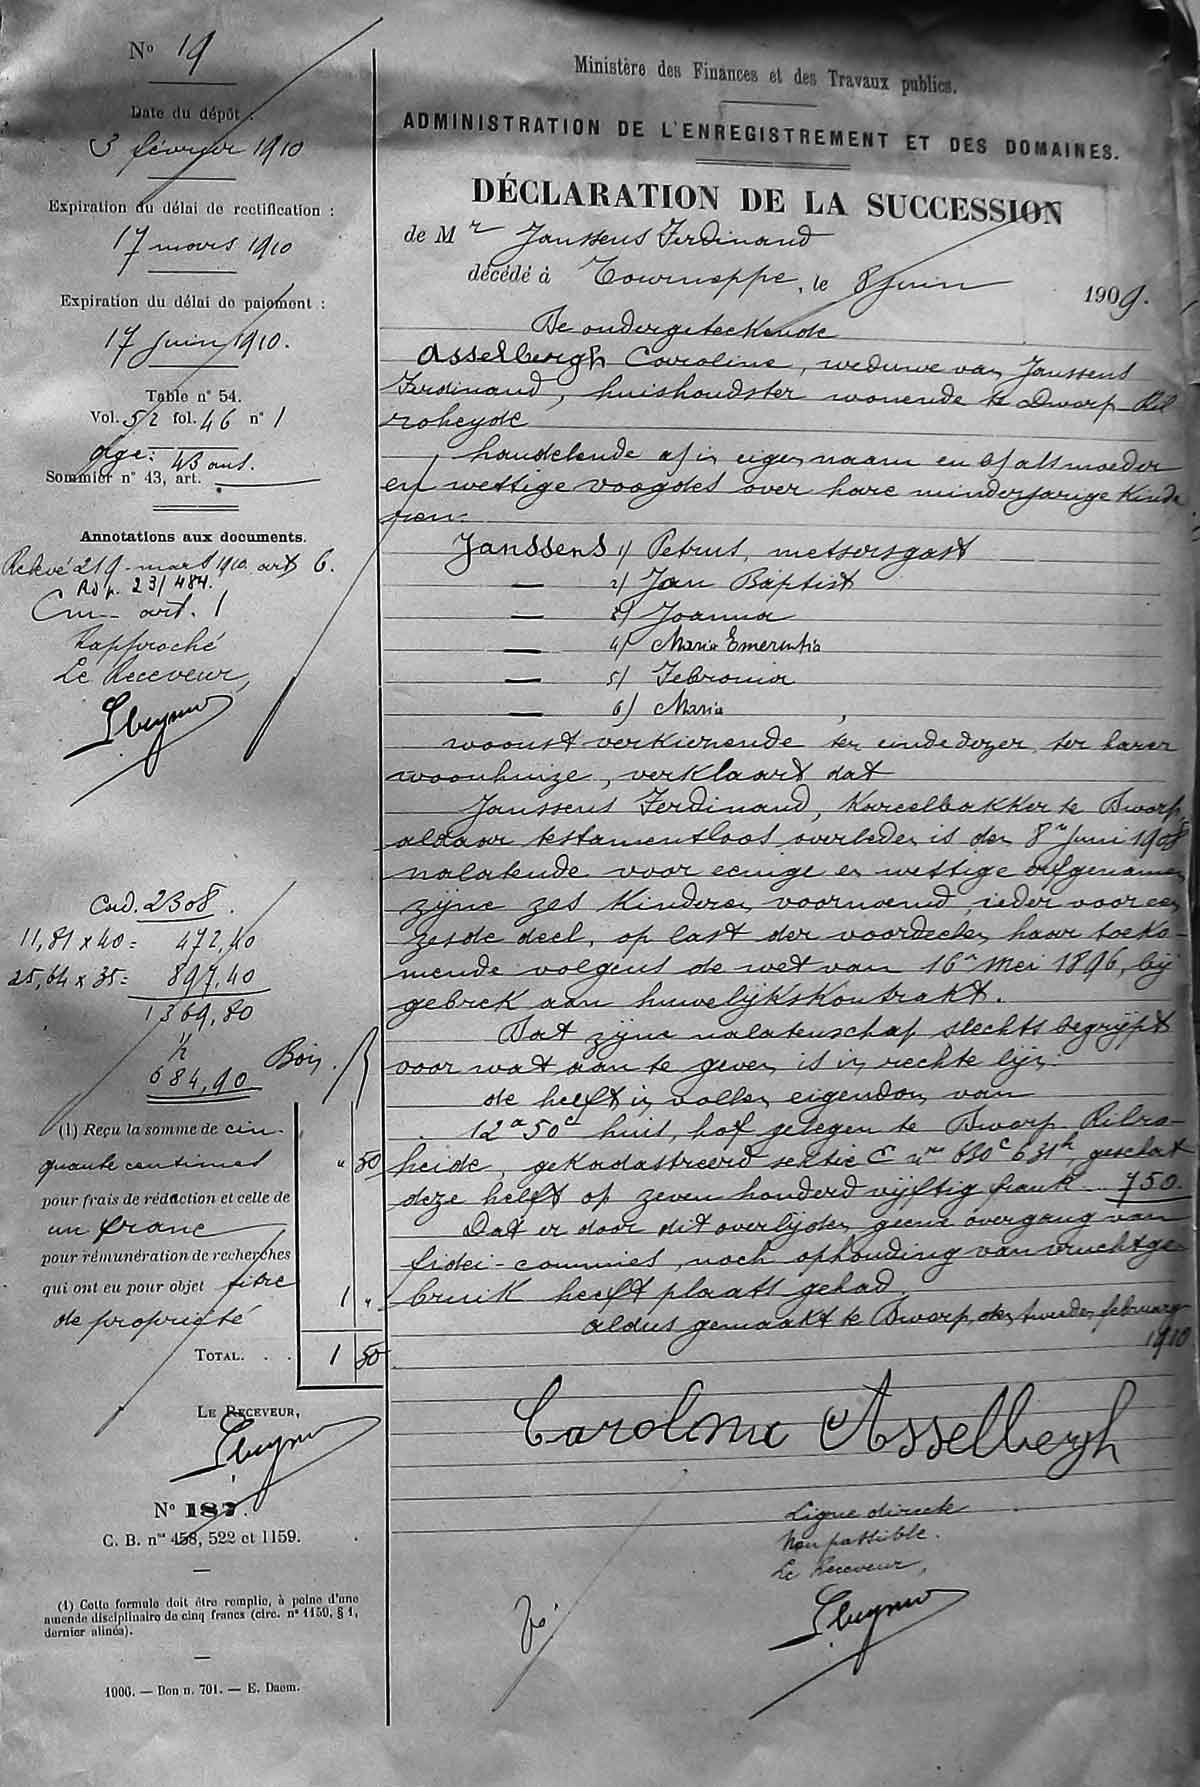 N° 19
Date du dépôt :
3 février 1910
Expiration du délai de rectification :
17 mars 1910
Expiration du délai de paiement :
17 juin 1910.
Table n° 54.
Vol. 52 fol. 46 n° 1
age : 43 ans.
Sommier n° 43, art.
Annotations aux documents.
Relevé 219 mars 1910 art 6.
23/484.
art. 1
Rapproché
Le Receveur,
Cad. 2308.
11,81 x 40 = 472,40
25,64 x 35 = 897,40
1369,80
1/2
684,90
Bon.
(1) Reçu la somme de cin-
quante centimes
" 50
pour frais de rédaction et celle de
un franc
pour rémunération de recherches
qui ont eu pour objet titre
1 "
de propriété
TOTAL. . . 1 50
LE RECEVEUR,
N° 187.
C. B. nos 458, 522 et 1159.
(1) Cette formule doit être remplie, à peine d'une
amende disciplinaire de cinq francs (circ. n° 1159, § 1,
dernier alinéa).
1906. — Bon n. 701. — E. Daem.
Ministère des Finances et des Travaux publics.
ADMINISTRATION DE L'ENREGISTREMENT ET DES DOMAINES.
DÉCLARATION DE LA SUCCESSION
de Mr Janssens Ferdinand
décédé à Tourneppe, le 8 juin 1909.
De ondergeteekende
Asselbergh Caroline, weduwe van Janssens
Ferdinand, huishoudster wonende te Dworp Kil
roheyde
handelende en eigen naam en als moeder
en wettige voogdes over hare minderjarige Kinde
ren:
Janssens 1/ Petrus, metsersgast
— 2/ Jan Baptist
— 3/ Joanna
— 4/ Maria Emerentia
— 5/ Febronia
— 6/ Maria,
woonst verkiezende ten einde dezer ter harer
woonhuize, verklaart dat
Janssens Ferdinand, Kareelbakker te Dworp,
aldaar testamentloos overleden is den 8n Juni 1908
nalatende voor eenige en wettige erfgenamen
zijne zes Kinderen voornoemd, ieder voor een
zesde deel, op last der voordeelen haar toeko-
mende volgens de wet van 16n Mei 1896, bij
gebrek aan huwelijkskontrakt.
Dat zijne nalatenschap slechts begrijpt
voor wat aan te geven is in rechte lijn:
de helft in vollen eigendom van
12a 50c huis, hof gelegen te Dworp Kilro-
heide, gekadastreerd sektie C nrs 630c 631h, geschat
deze helft op zeven honderd vijftig frank 750.
Dat er door dit overlijden geene overgang van
fidei-commies, noch ophouding van vruchtge-
bruik heeft plaats gehad
aldus gemaakt te Dworp, den tweeden february
1910
Caroline Asselbergh
Ligne directe
Non passible.
Le Receveur,